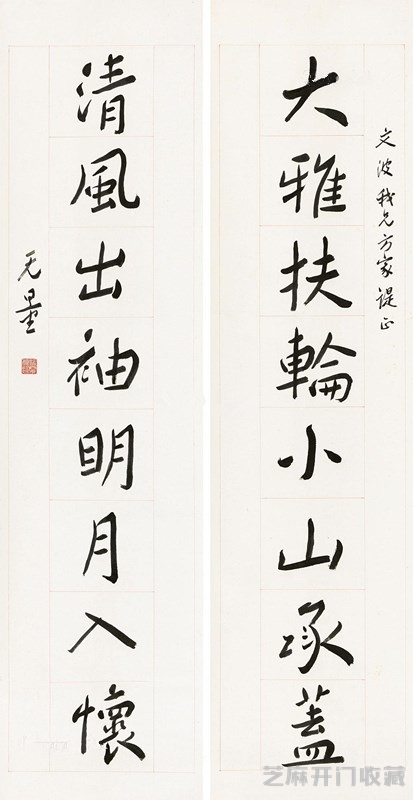 文波我兄方家諟正
大雅扶輪小山承蓋
清風出袖明月入懷
无量
芝麻开门收藏